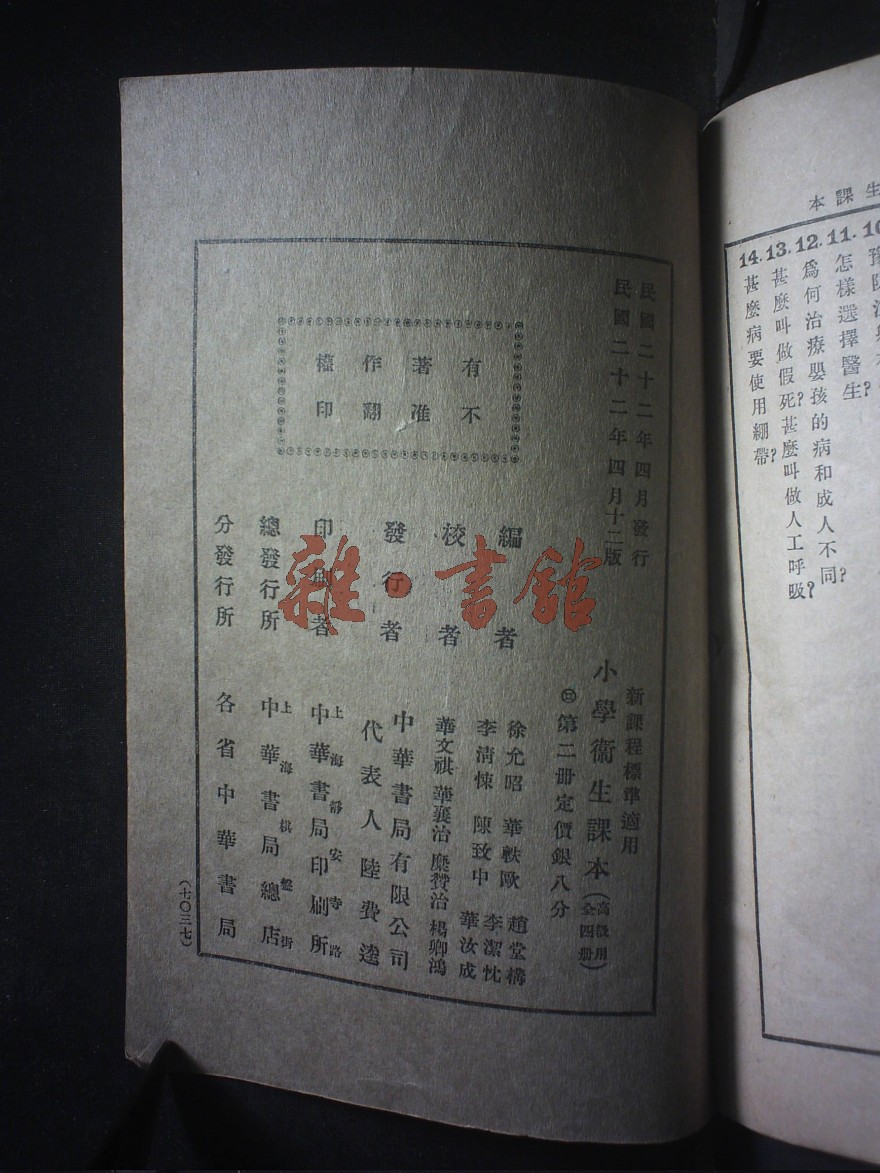 生課本
怎樣選擇醫生?
11.
為何治療嬰孩的病和成人不同?
12.
甚麼叫做假死?甚麼叫做人工呼吸?
13.
甚麼病要使用綳帶?
14.
民國二十二年四月發行
民國二十二年四月十二版
有著作權
不准翻印
新課程標準適用
小學衛生課本(高級用全四册)
第二册定價銀八分
編者
徐允昭 華軼歐 趙堂構
李清悚 陳致中 李潔忱
華汝成
校者
華文祺 華襄治 糜贊治 楊卿鴻
發行者
中華書局有限公司
代表人陸費逵
印刷者
上海靜安寺路
中華書局印刷所
總發行所
上海棋盤街
中華書局總店
分發行所
各省中華書局
(七〇三七)
雜·書館